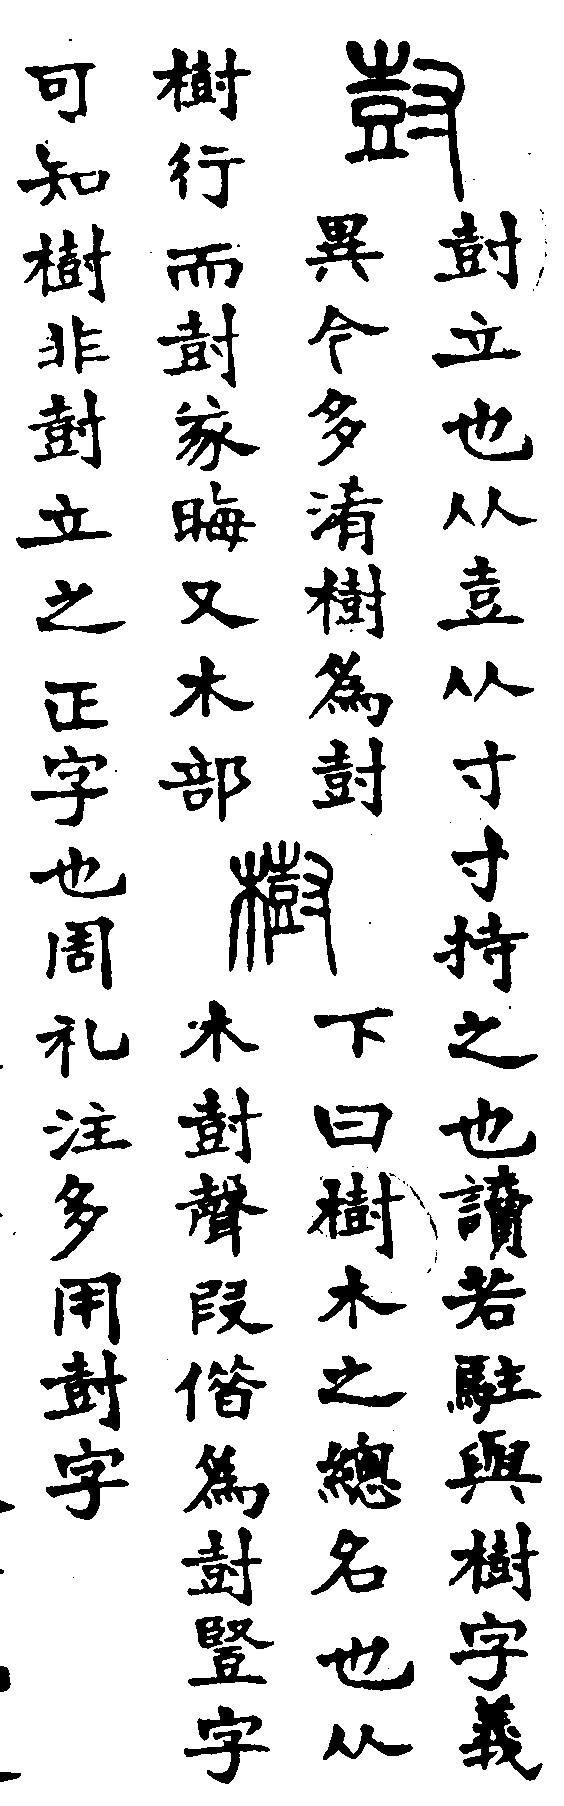 尌
尌立也从壴从寸寸持之也讀若駐與樹字義
異今多淆樹為尌
樹行而尌㒸晦又木部
樹
下曰樹木之總名也从
木尌聲叚偕為尌豎字
可知樹非尌立之正字也周礼注多用尌字